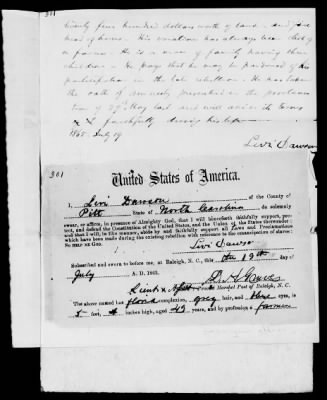 twenty five hundred dollars worth of land. and five
head of horses. His vocation has always been that of
a farmer. He is a man of family having three
children. He prays that he may be pardoned of his
participation in the late rebellion. He has taken
the oath of amnesty prescribed in the proclama-
tion of 29th May last and will obey its terms
& c faithfully during his life
1865. July 19
Levi Dawson
301
United States of America.
I, Levi Dawson of the County of
Pitt State of North Carolina do solemnly
swear, or affirm, in presence of Almighty God, that I will henceforth faithfully support, pro-
tect, and defend the Constitution of the United States, and the Union of the States thereunder:
and that I will, in like manner, abide by and faithfully support all Laws and Proclamations
which have been made during the existing rebellion with reference to the emancipation of slaves:
SO HELP ME GOD.
Levi Dawson
Subscribed and sworn to before me, at Raleigh, N. C., this the 19th day of
July A. D. 1865.
Lieut &
Marshal Post of Raleigh, N. C.
The above named has florid complexion, grey hair, and blue eyes, is
5 feet, 4 inches high, aged 43 years, and by profession a farmer